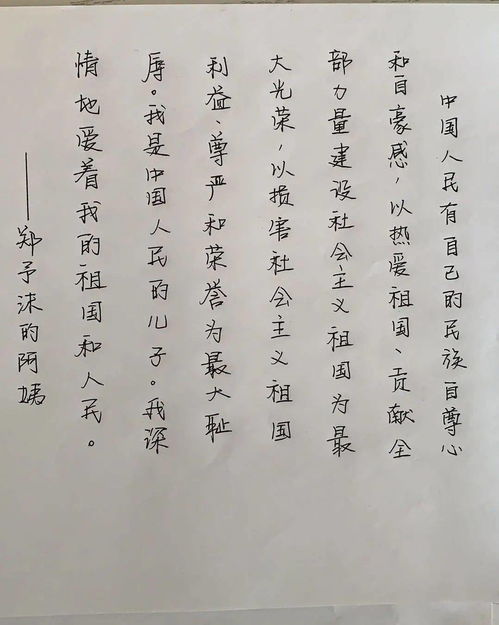 中国人民有自己的民族自尊心
和自豪感，以热爱祖国、贡献全
部力量建设社会主义祖国为最
大光荣，以损害社会主义祖国
利益、尊严和荣誉为最大耻
辱。我是中国人民的儿子。我深
情地爱着我的祖国和人民。
——郑予沫的阿姨